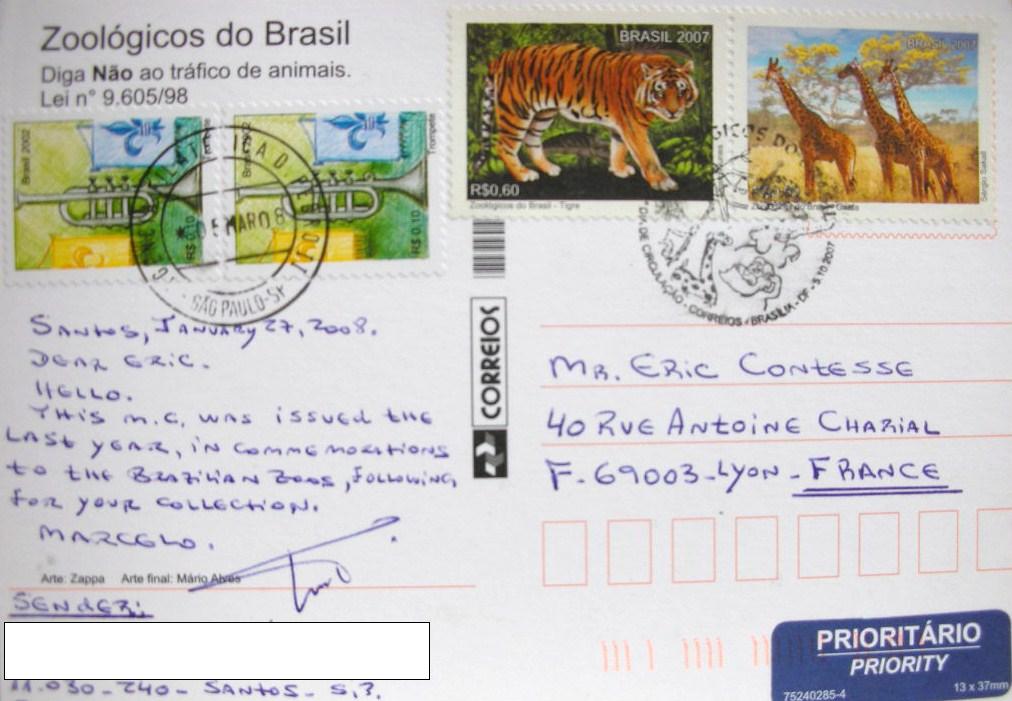 Zoológicos do Brasil
Diga Não ao tráfico de animais.
Lei n° 9.605/98
Brasil 2002
Trompete
R$ 0,10
Brasil 2002
Trompete
R$ 0,10
05 MAR 08
SÃO PAULO-SP
BRASIL 2007
R$0,60
Zoológicos do Brasil - Tigre
BRASIL 2007
Zoológicos do Brasil - Girafa
DIA DE CIRCULAÇÃO - CORREIOS - BRASÍLIA - DF - 5.10.2007
CORREIOS
SANTOS, JANUARY 27, 2008.
DEAR ERIC.
HELLO.
THIS M.C. WAS ISSUED THE
LAST YEAR, IN COMMEMORATIONS
TO THE BRAZILIAN ZOOS, FOLLOWING,
FOR YOUR COLLECTION.
MARCELO.
Arte: Zappa Arte final: Mário Alves
SENDER:
11.030-240- SANTOS- S.P.
MR. ERIC CONTESSE
40 RUE ANTOINE CHARIAL
F-69003-LYON-FRANCE
PRIORITÁRIO
PRIORITY
75240285-4
13 x 37mm